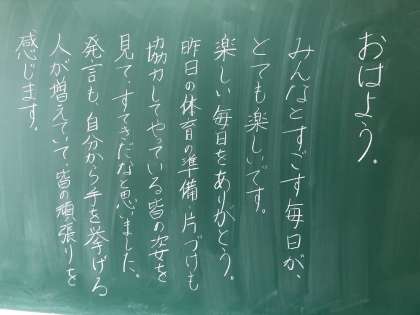 おはよう。
みんなとすごす毎日が、
とても楽しいです。
楽しい毎日をありがとう。
昨日の体育の準備・片づけも
協力してやっている皆の姿を
見て、すてきだなと思いました。
発言も、自分から手を挙げる
人が増えていて皆の頑張りを
感じます。